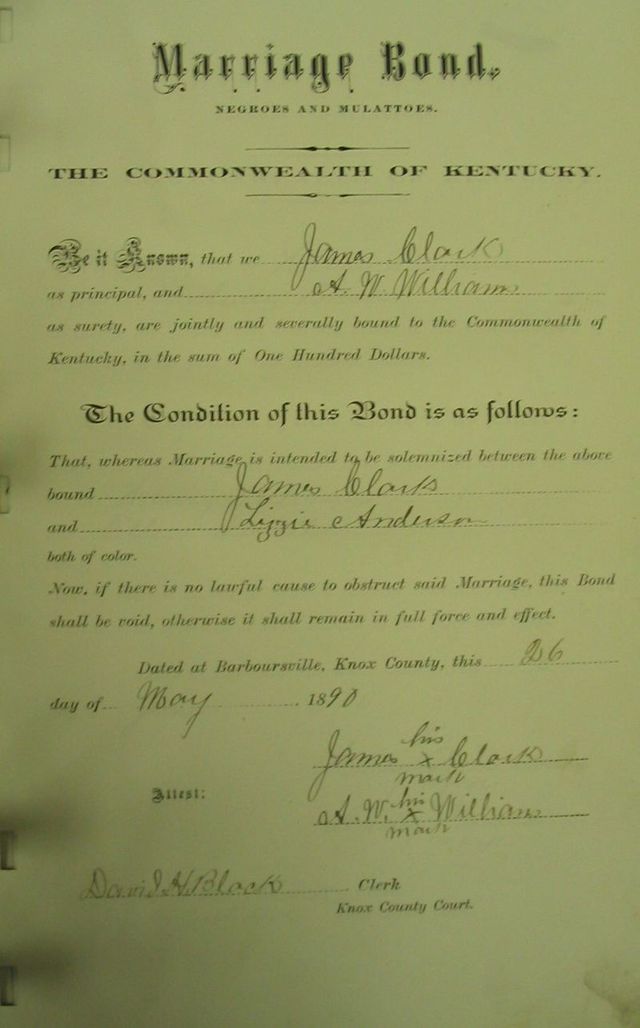 Marriage Bond.
NEGROES AND MULATTOES.
THE COMMONWEALTH OF KENTUCKY.
Be it Known, that we James Clark
as principal, and A. W. Williams
as surety, are jointly and severally bound to the Commonwealth of
Kentucky, in the sum of One Hundred Dollars.
The Condition of this Bond is as follows:
That, whereas Marriage is intended to be solemnized between the above
bound James Clark
and Lizzie Anderson
both of color.
Now, if there is no lawful cause to obstruct said Marriage, this Bond
shall be void, otherwise it shall remain in full force and effect.
Dated at Barboursville, Knox County, this 26
day of May 1890
his
James x Clark
mark
Attest:
his
A. W. x Williams
mark
David H. Black Clerk
Knox County Court.